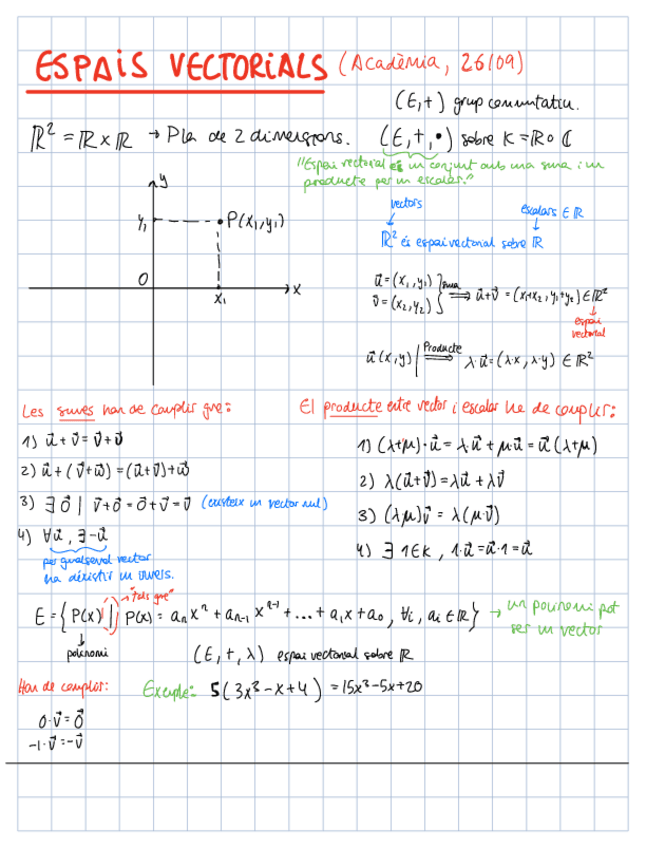 ESPAIS VECTORIALS (Acadèmia, 26/09)
(E,+) grup commutatiu.
ℝ² = ℝ x ℝ → Pla de 2 dimensions. (E,+,•) sobre K = ℝ o ℂ
"Espai vectorial és un conjunt amb una suma i un
producte per un escalar."
y
y₁
P(x₁,y₁)
0
x₁
x
vectors
escalars ∈ ℝ
ℝ² és espai vectorial sobre ℝ
u⃗ = (x₁,y₁)
v⃗ = (x₂,y₂)
suma ⟹ u⃗+v⃗ = (x₁+x₂, y₁+y₂) ∈ ℝ²
espai
vectorial
u⃗(x,y) | Producte ⟹ λ·u⃗ = (λ·x, λ·y) ∈ ℝ²
Les sumes han de complir que:
1) u⃗ + v⃗ = v⃗ + u⃗
2) u⃗ + (v⃗+w⃗) = (u⃗+v⃗)+w⃗
3) ∃ 0⃗ | v⃗+0⃗ = 0⃗+v⃗ = v⃗ (existeix un vector nul)
4) ∀u⃗, ∃-u⃗
per qualsevol vector
ha d'existir un invers.
El producte entre vector i escalar ha de complir:
1) (λ+μ)·u⃗ = λ·u⃗ + μ·u⃗ = u⃗(λ+μ)
2) λ(u⃗+v⃗) = λu⃗ + λv⃗
3) (λμ)v⃗ = λ(μ·v⃗)
4) ∃ 1∈K, 1·u⃗ = u⃗·1 = u⃗
"tals que"
E = {P(x) | P(x) = aₙxⁿ + aₙ₋₁xⁿ⁻¹ + ... + a₁x + a₀, ∀i, aᵢ ∈ ℝ} → un polinomi pot
ser un vector
polinomi
(E,+,λ) espai vectorial sobre ℝ
Han de complir:
0·v⃗ = 0⃗
-1·v⃗ = -v⃗
Exemple: 5(3x² - x + 4) = 15x² - 5x + 20